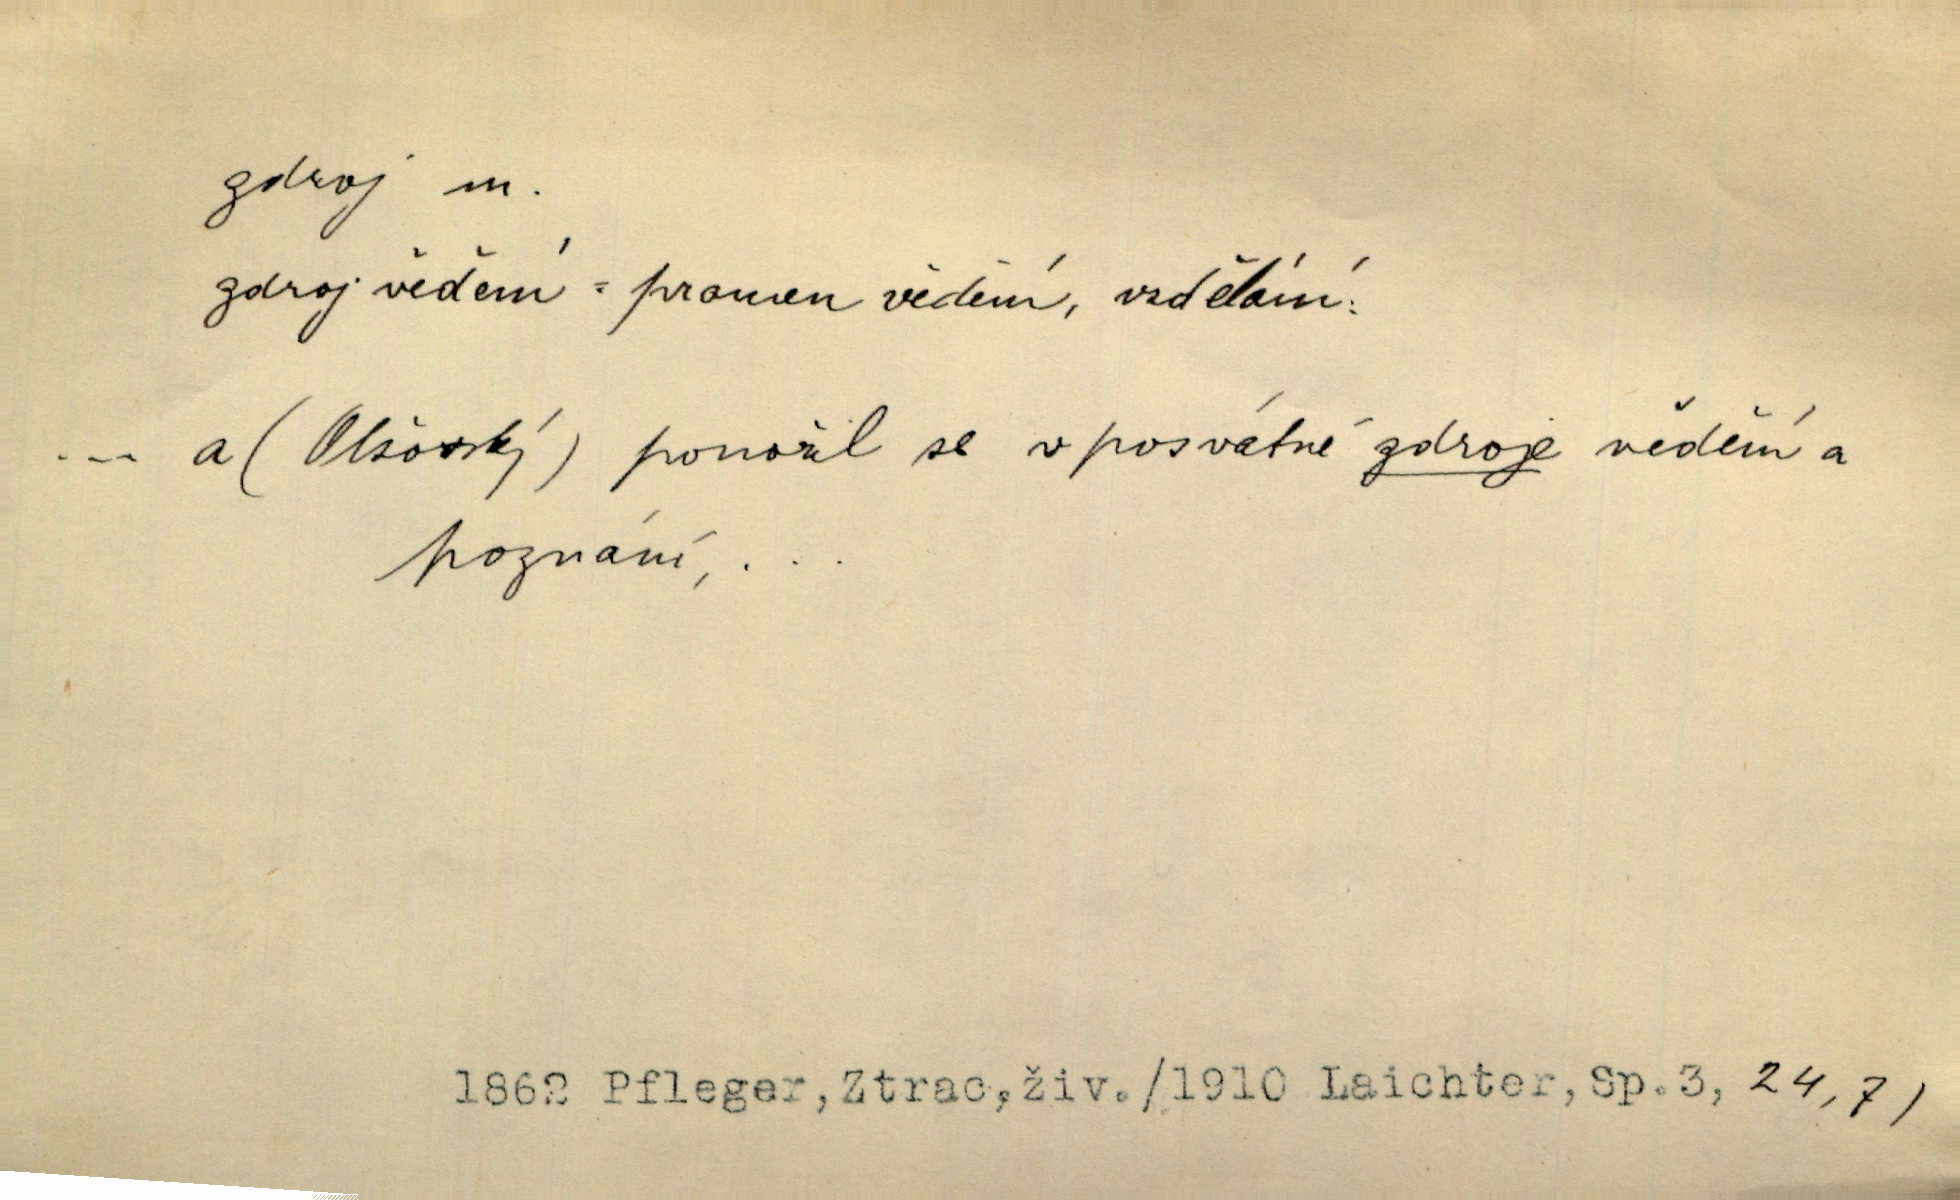 zdroj m.
zdroj vědění = pramen vědění, vzdělání:
... a (Olšovský) ponořil se v posvátné zdroje vědění a
poznání, ...
1862 Pfleger,Ztrac,živ./1910 Laichter,Sp.3, 24,7)